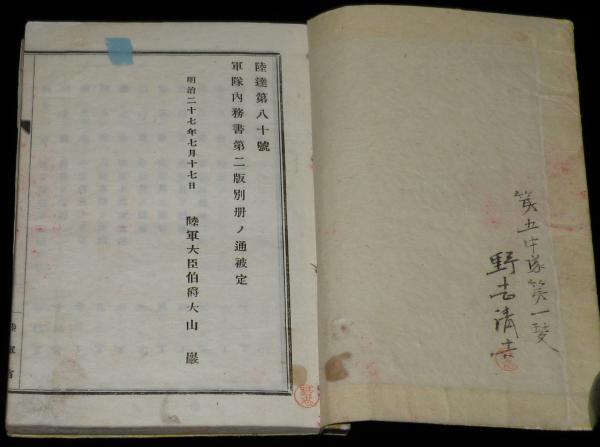 第五中隊第一
野志清吉
陸達第八十號
軍隊內務書第二版別册ノ通被定
明治二十七年七月十七日
陸軍大臣伯爵大山 巖
陸軍省